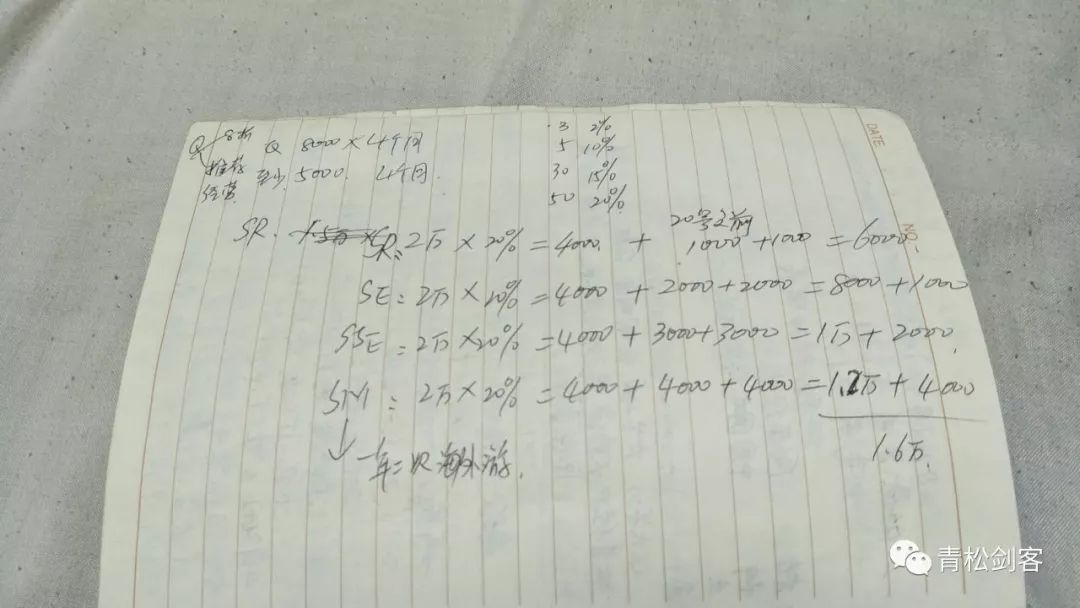 Q 8折 Q 8000×4个月 3 2%
推荐 至少 5000 4个月 5 10%
经营 30 15%
50 20%
DATE
NO.
20号之前
SR. SR: 2万×20%=4000 + 1000+1000=6000
SE: 2万×20%=4000+2000+2000=8000+1000
SSE: 2万×20%=4000+3000+3000=1万+2000
SM: 2万×20%=4000+4000+4000=1.2万+4000
1.6万.
↓ 一年二次海外游.
青松剑客